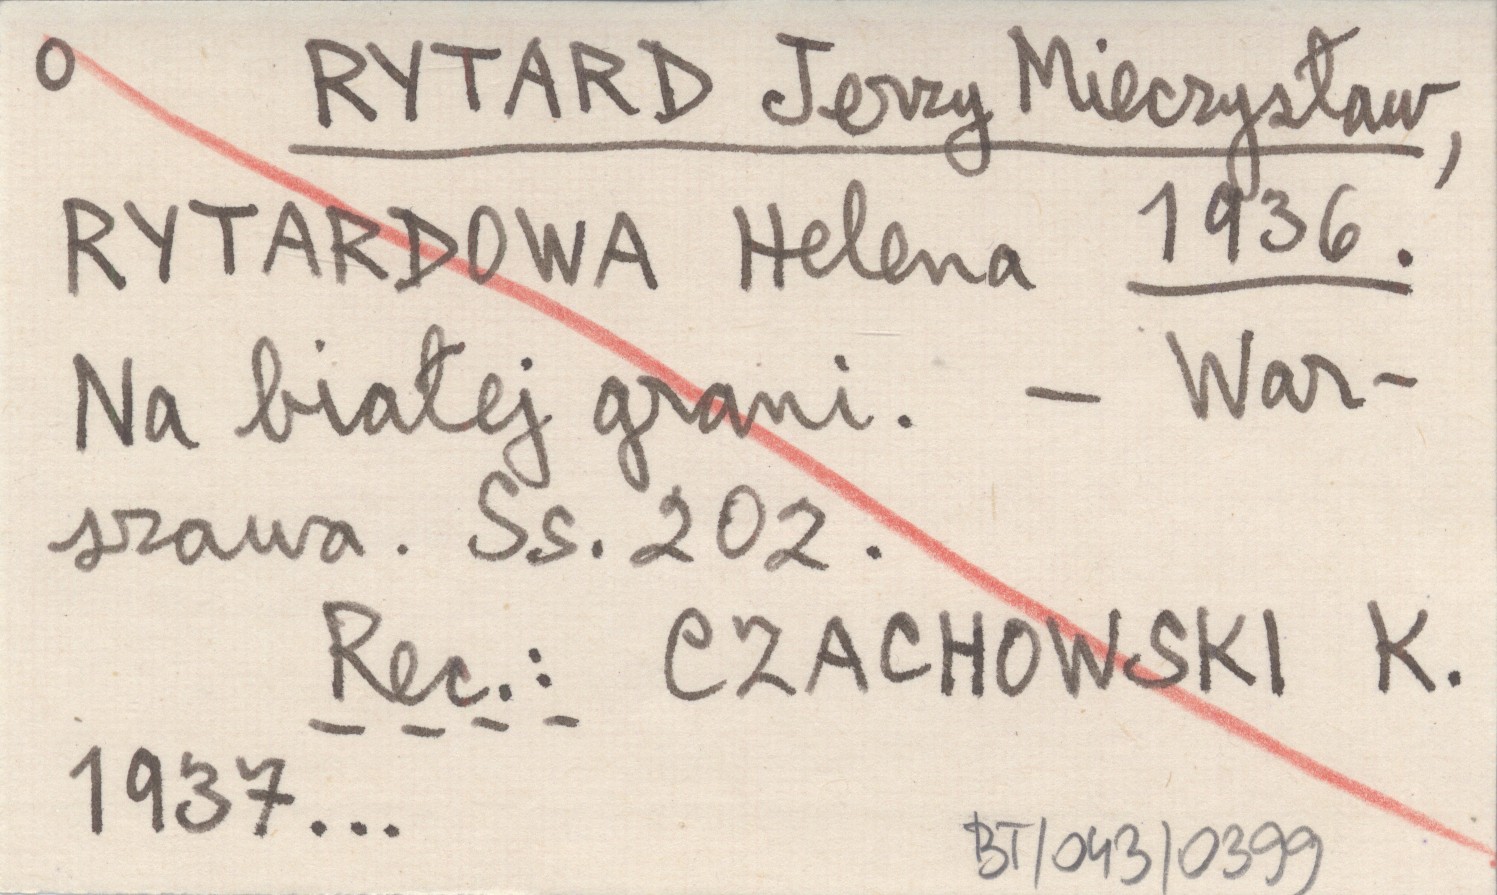 O RYTARD Jerzy Mieczysław,
RYTARDOWA Helena 1936.
Na białej grani. – War-
szawa. Ss. 202.
Rec.: CZACHOWSKI K.
1937...
BT/043/0399